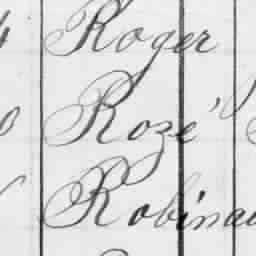 Roger
Rozé
Robinau